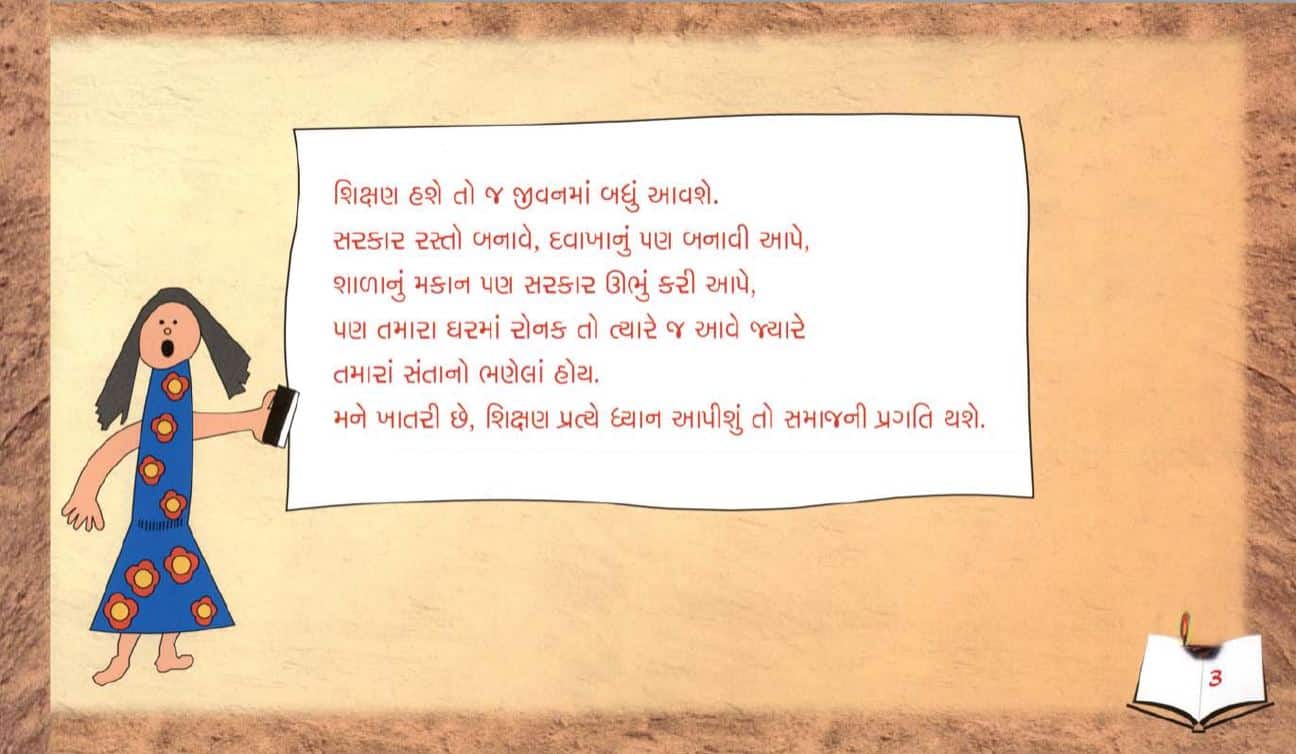 શિક્ષણ હશે તો જ જીવનમાં બધું આવશે.
સરકાર રસ્તો બનાવે, દવાખાનું પણ બનાવી આપે,
શાળાનું મકાન પણ સરકાર ઊભું કરી આપે,
પણ તમારા ઘરમાં રોનક તો ત્યારે જ આવે જ્યારે
તમારાં સંતાનો ભણેલાં હોય.
મને ખાતરી છે, શિક્ષણ પ્રત્યે ધ્યાન આપીશું તો સમાજની પ્રગતિ થશે.
3